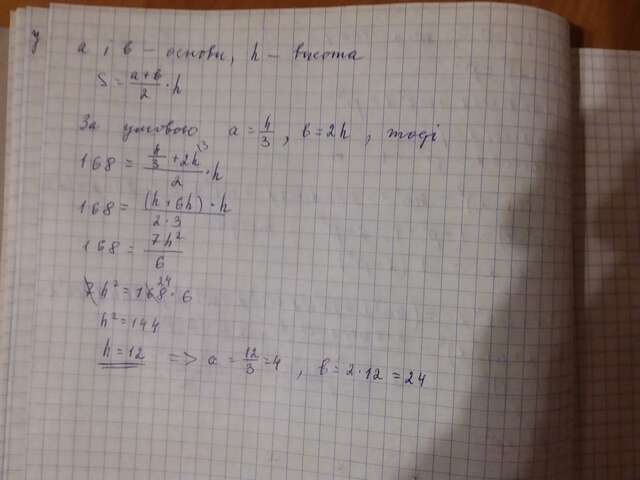 у
а і в – основи, h – висота
S = (а+в)/2 · h
За умовою а = h/3, в = 2h, тоді
168 = (h/3 + 2h\3)/2 · h
168 = (h+6h)·h/(2·3)
168 = 7h²/6
7h² = 168 24 · 6
h² = 144
h = 12 => а = 12/3 = 4, в = 2·12 = 24